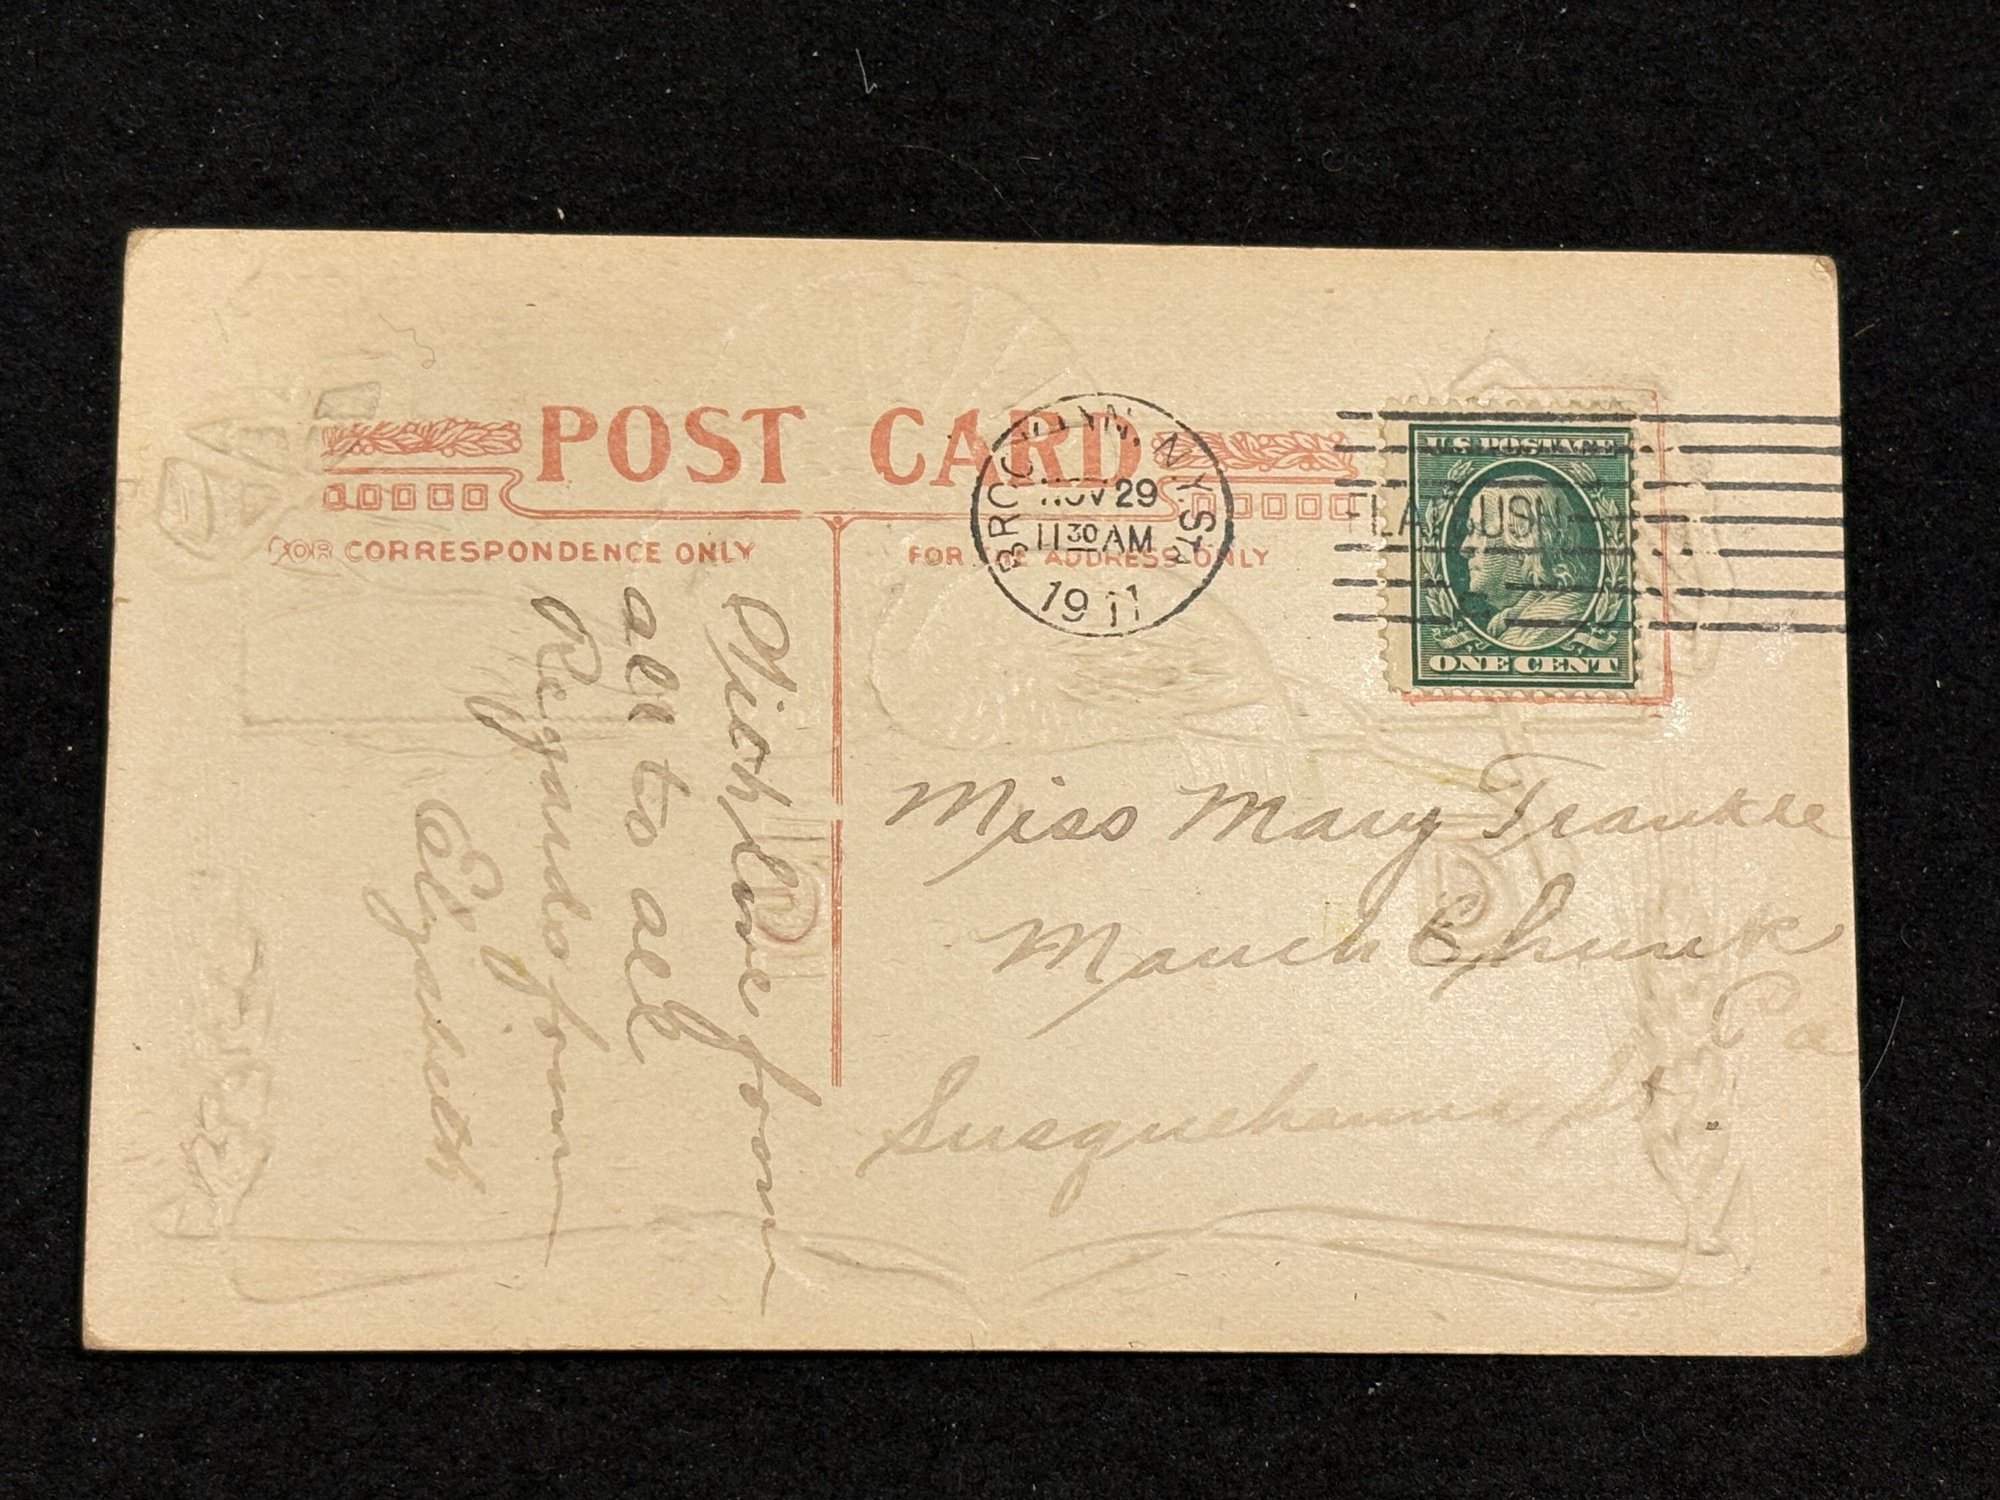 POST CARD
FOR CORRESPONDENCE ONLY
FOR THE ADDRESS ONLY
BROOKLYN, N.Y. STA
NOV 29
11 30 AM
1911
FLATBUSH
U.S. POSTAGE
ONE CENT
With love from
all to all
Regards from
Elizabeth
Miss Mary Frankle
Mauch Chunk
Pa
Susquehanna St.